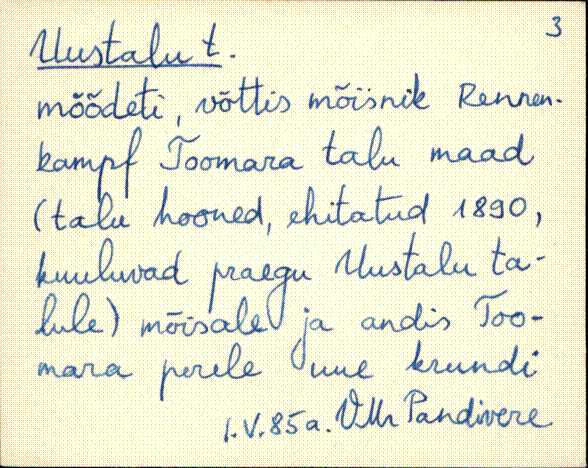 3
Uustalu t.
mõõdeti, võttis mõisnik Rennen-
kampf Toomara talu maad
(talu hooned, ehitatud 1890,
kuuluvad praegu Uustalu ta-
lule) mõisale ja andis Too-
mara perele uue krundi
1.V.85a. VMr Pandivere